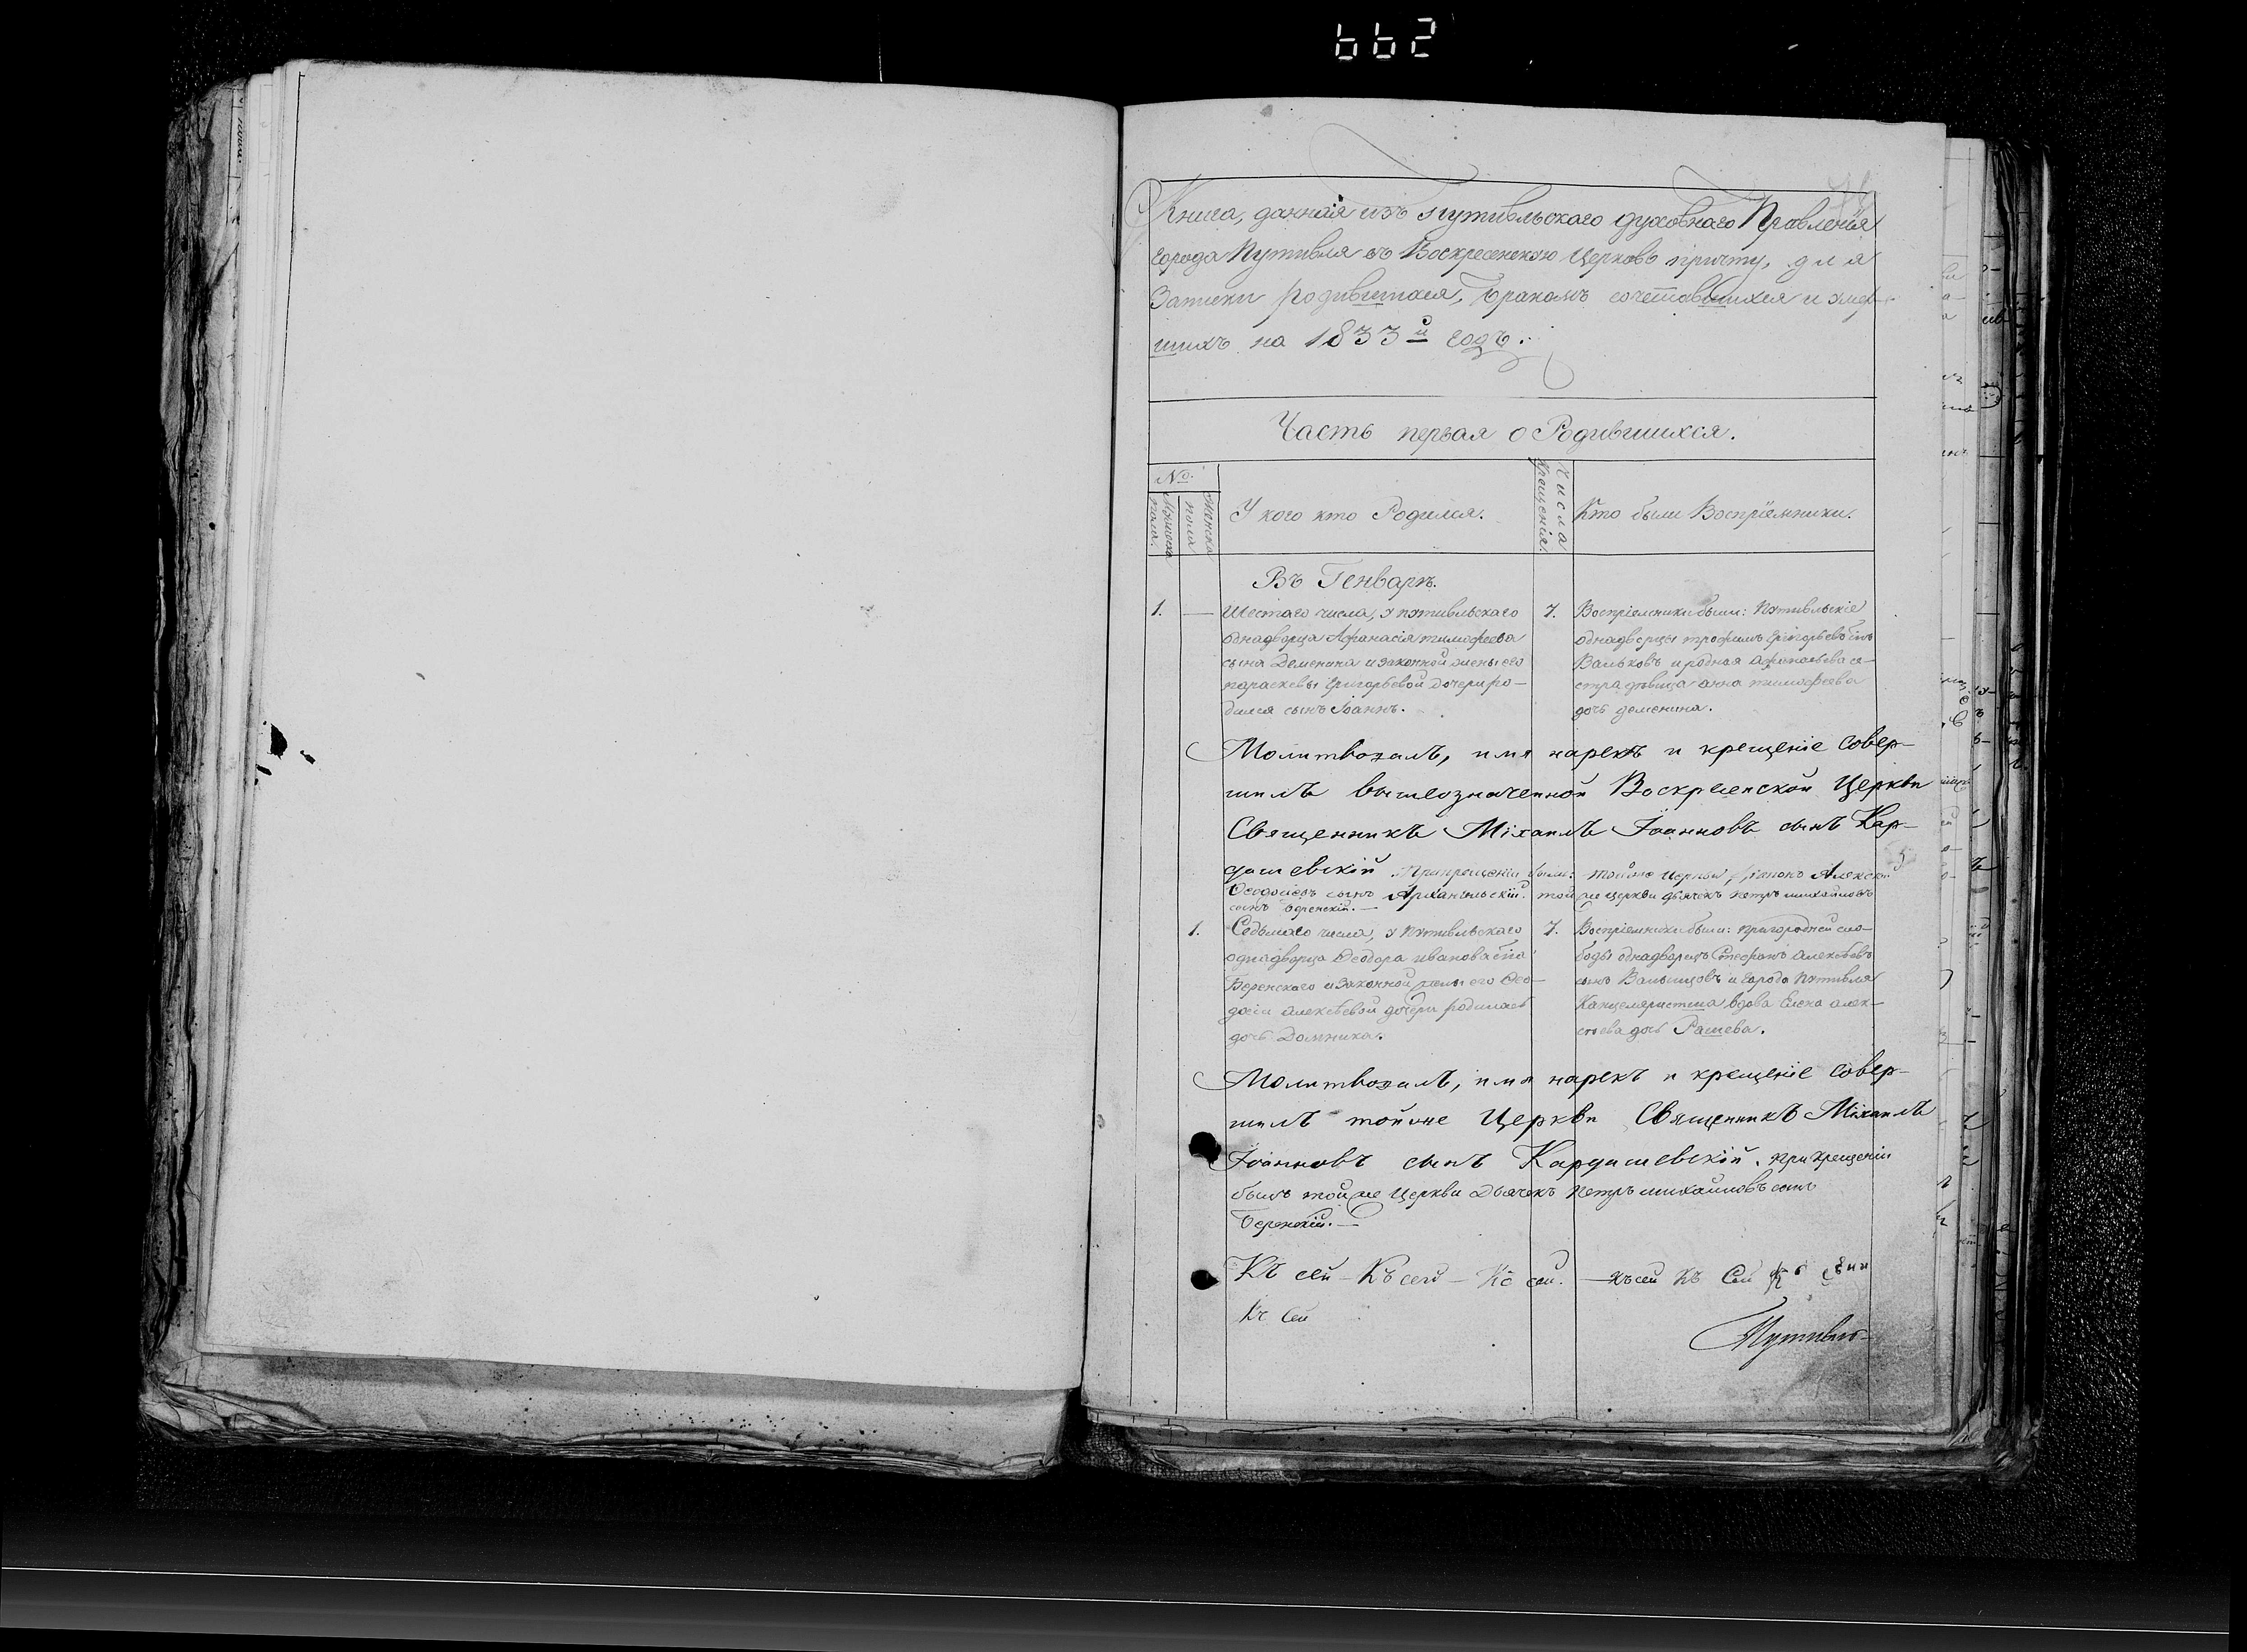 662
Книга, данная изъ Путивльскаго духовнаго Правленія
города Путивля въ Воскресенскою Церковь причту, для
Записки родившихся, бракомъ сочетавшихся и умер-
шихъ на 1833й годъ.
Часть первая о Родившихся.
№
Мужеска пола.
Женска пола
У кого кто Родился.
Числа Крещенія.
Кто были Воспріемники.
Въ Генварѣ.
1. — Шестаго числа, у путивльскаго
однадворца Афанасія тимофеева
сына Деменина и законной жены его
параскевы Григорьевой дочери ро-
дился сынъ Іоаннъ.
7. Воспріемники были: Путивльскіе
однадворцы трофимъ Григорьевъ снъ
Вальковъ и родная афанасьева се-
стра дѣвица анна тимофеева
дочь деменина.
Молитвовалъ, имя нарекъ и крещеніе совер-
шилъ вышеозначенной Воскресенской Церкви
Священникъ Міхаилъ Іоанновъ сынъ Кар-
дашевскій. При крещеніи были: тойже церкви, діаконъ Алексей
Феодосіевъ сынъ Архангельскій. той же церкви дьячекъ петръ михайловъ
сынъ Беренскій. —
1. Седьмаго числа, у Путивльскаго
однадворца Феодора иванова сна
Беренскаго и законной жены его Фео-
досіи алексѣевой дочери родилась
дочь Домника.
7. Воспріемники были: пригородней сло-
боды однадворецъ Стефанъ алексѣевъ
сынъ и города Путивля
Канцеляристша вдова Елена алек-
сеева дочь Рашева.
Молитвовалъ, имя нарекъ и крещеніе совер-
шилъ тойже Церкви Священникъ Міхаилъ
Іоанновъ сынъ Кардашевскій. При крещеніи
былъ той же Церкви Дьячекъ петръ михайловъ сынъ
Беренскій. —
Къ сей — Къ сей — Къ сей. — къ сей Къ Сей Къ сей
Къ Сей
Путивль-